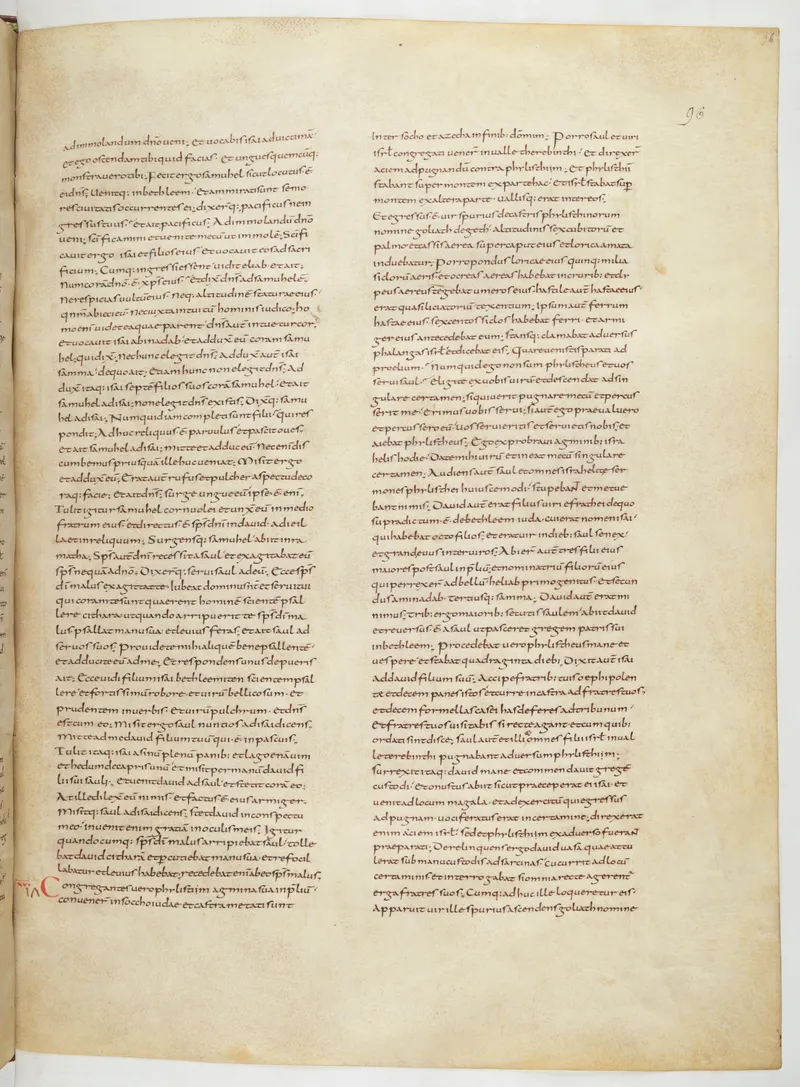 96
adimmolandum dno ueni; Et uocabis isai aduictimā
et ego ostendam tibi quid facias. Et ungues quemcūq:
monstrauero tibi; Fecit ergo samuhel sicut locutus ē
ei dns; Uenitq: in bethleem. Et ammirati sunt senio
res ciuitatis occurrentes ei; dixerq: pacificus nem
gressus tuus? et ait pacificus; Ad immolandū dno
ueni; scificamini et uenite mecū ut immolē; Scifi
cauit ergo isai et filios eius et uocauit eos ad sacri
ficium; Cumq: ingressi essent uidit eliab et ait;
Num corā dno ē xps eius? et dix dns ad samuhelē;
Ne respicias uultū eius neq: altitudinē staturae eius
qnm abieci eū nec iuxta intuitū hominis iudico; ho
mo eni uidet ea quae parent dns aut intuetur cor;
et uocauit isai abinadab et adduxit eū coram samu
hel; qui dix; nec hunc elegit dns; Adduxit aut isai
samma de quo ait; Etiam hunc non elegit dns; Ad
duxit itaq: isai septē filios suos corā samuhel. et ait
samuhel ad isai; non elegit dns ex istis; Dixq: samu
hel ad isai; Numquid iam completi sunt filii? qui res
pondit; Adhuc reliquus ē paruulus et pascit oues;
et ait samuhel ad isai; mitte et adduc eū. nec enī dis
cumbemus priusquā ille huc ueniat; Misit ergo
et adduxit eū; Erat aut rufus et pulcher aspectu deco
raq: facie; et ait dns; surge ungue eū ipse ē eni;
Tulit igitur samuhel cornu olei et unxit eū in medio
fratrum eius et directus ē sps dni in dauid a die il
la et in reliquum; Surgensq: samuhel abiit in ra
matha; Sps aut dni recessit a saul et exagitabat eū
sps nequā a dno; Dixerq: serui saul ad eū; Ecce sps
di malus exagitat te. Iubeat dominus nt et serui tui
qui coram te sunt quaerent hominē scientē psal
lere cithara ut quando arripuerit te sps di ma
lus psallat manu sua et leuius feras; et ait saul ad
seruos suos; Prouidete mihi aliquē bene psallentē
et adducite eū ad me; Et respondens unus de pueris
ait; Ecce uidi filium isai bethleemiten scientem psal
lere et fortissimū robore et uirū bellicosum et
prudentem in uerbis et uirū pulchrum et dns
est cum eo; Misit ergo saul nuntios ad isai dicens;
Mitte ad me dauid filium tuū qui ē in pascuis;
Tulit itaq: isai asinū plenū panib: et lagoenā uini
et hedum de capris unū et misit per manū dauid fi
lii sui sauli; et uenit dauid ad saul et stetit corā eo;
At ille dilexit eū nimis et factus ē eius armiger;
Misitq: saul ad isai dicens; stet dauid in conspectu
meo. inuenit enim gratiā in oculis meis; Igitur
quandocumq: sps di malus arripiebat saul tolle
bat dauid citharā et percutiebat manu sua et refocil
labatur et leuius habebat; recedebat eni ab eo sps malus;
Congregantes uero phylistiim agmina sua in plium
conuener in soccho iudae et castra metati sunt
Inter socho et azecha in finib: dommim; Porro saul et uiri
isrl congregati uener in ualle therebinthi. Et direxer
aciem ad pugnandū contra phylisthiim; Et phylisthii
stabant super montem ex parte hac et isrl stabat sup
montem ex altera parte. uallisq: erat inter eos;
Et egressus ē uir spurius de castris phylisthinorum
nomine goliath de geth. altitudinis sex cubitorū et
palmo et cassis aerea super caput eius et lorica amata
induebatur; Porro pondus loricae eius quinq: milia
siclorū aeris et ocreas aereas habebat in crurib: et cly
peus aereus tegebat umeros eius; hastile aut hastae eius
erat quasi liciatoriū texentium; ipsum aut ferrum
hastae eius sexcentos siclos habebat ferri. et armi
ger eius antecedebat eum; stansq: clamabat aduersus
phalangas isrl et dicebat eis; Quare uenistis parati ad
proelium? Numquid ego non sum phylistheus et uos
serui saul? Eligite ex uobis uirū et descendat ad sin
gulare certamen; si quiuerit pugnare mecū et percus
serit me erimus uobis serui; si aut ego praeualuero
et percussero eū uos serui eritis et seruietis nobis; et
aiebat phylistheus; Ego exprobraui agminib: isra
helis hodie. Date mihi uirū et ineat mecū singulare
certamen; Audiens aut saul et omnes israhelitae ser
mones phylisthei huiuscemodi stupebant et metue
bant nimis; Dauid aut erat filius uiri efrathei de quo
supra dictum ē de bethleem iuda. cui erat nomen isai
qui habebat octo filios; et erat uir in dieb: saul senex
et grandeuus inter uiros; Abier aut tres filii eius
maiores post saul in pliū; et nomina triū filiorū eius
qui perexer ad bellū heliab primogenitus et secun
dus aminadab. tertiusq: samma; Dauid aut erat mi
nimus; trib: ergo maiorib: secutis saulem abiit dauid
et reuersus ē a saul ut pasceret gregem patris sui
in bethleem; Procedebat uero phylistheus mane et
uespere et stabat quadraginta dieb; Dixit aut isai
ad dauid filium suū; Accipe fratrib: tuis oephi polen
tae et decem panes istos et curre in castra ad fratres tuos;
et decem formellas casei has deferes ad tribunum
et fratres tuos uisitabis si recte agant et cum quib:
ordati sint disce; saul aut et illi et omnes filii isrl in ual
le terebinthi pugnabant aduersum phylisthiim;
surrexit itaq: dauid mane et commendauit gregē
custodi. et onustus abiit sicut praeceperat ei isai. et
uenit ad locum magala. et ad exercitū qui egressus
ad pugnam uociferatus erat in certamine; direxerat
enim aciem isrl. sed et phylisthiim ex aduerso fuerant
praeparati; Derelinquens ergo dauid uasa quae attu
lerat sub manu custodis ad sarcinas cucurrit ad locū
certaminis et interrogabat si omnia recte agerent
erga fratres suos; Cumq: adhuc ille loqueretur eis.
Apparuit uir ille spurius ascendens goliath nomine